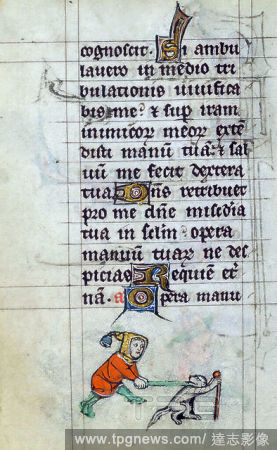 cognoscit. Si ambu
lauero in medio tri
bulationis uiuifica
bis me: & sup iram
inimicor meor exten
disti manu tua: & sal
uu me fecit dextera
tua. Dns retribuet
pro me dne misedia
tua in seclm: opera
manuu tuar ne des
picias. Requie eter
na. a Opera manu
www.tpgnews.com/ 達志影像